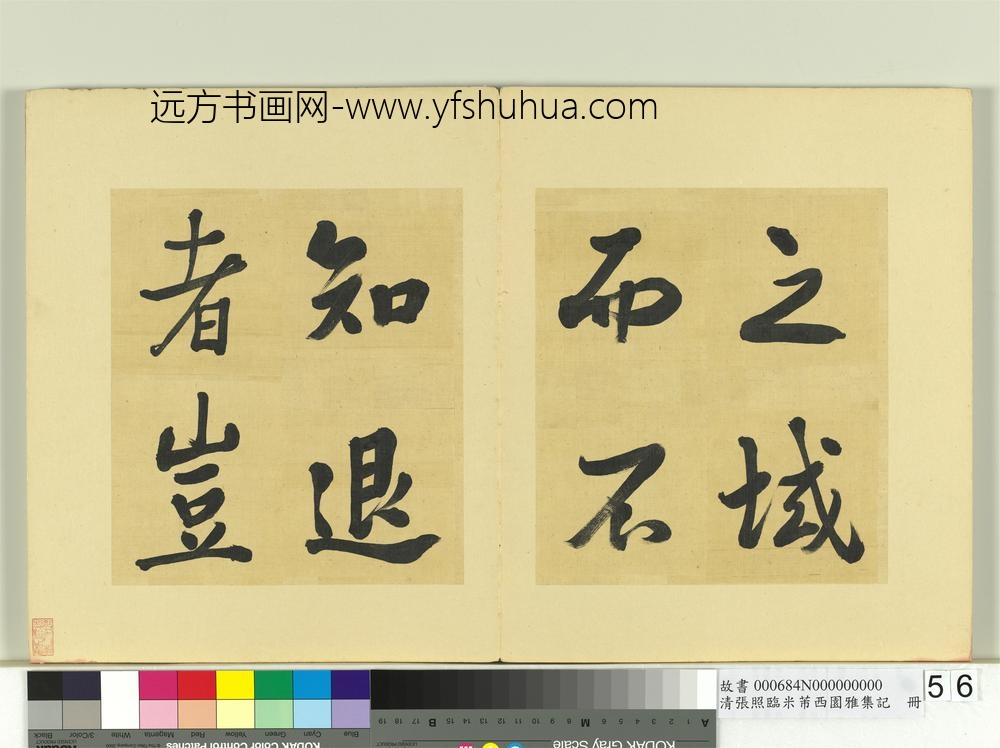 远方书画网-www.yfshuhua.com
之域
而不
知退
者豈
故書 000684N000000000
清張照臨米芾西園雅集記 冊
56
Blue
Cyan
Green
Yellow
Red
Magenta
White
3/Color
Black
KODAK Color Control Patches
KODAK Gray Scale
A 1 2 3 4 5 6 M 8 9 10 11 12 13 14 15 B 17 18 19